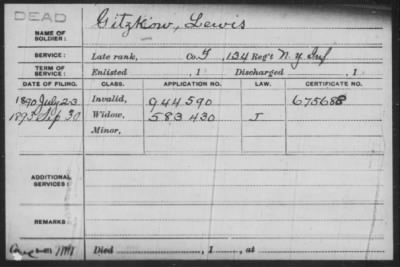 DEAD
NAME OF SOLDIER: Gitzkiow, Lewis
SERVICE: Late rank, Co. F, 134 Reg't N. Y. Inf
TERM OF SERVICE: Enlisted , 1 Discharged , 1
DATE OF FILING. CLASS. APPLICATION NO. LAW. CERTIFICATE NO.
1890 July 23 Invalid, 944590 675688
1893 Sep 30 Widow, 583430 J
Minor,
ADDITIONAL SERVICES:
REMARKS:
Died , 1 , at